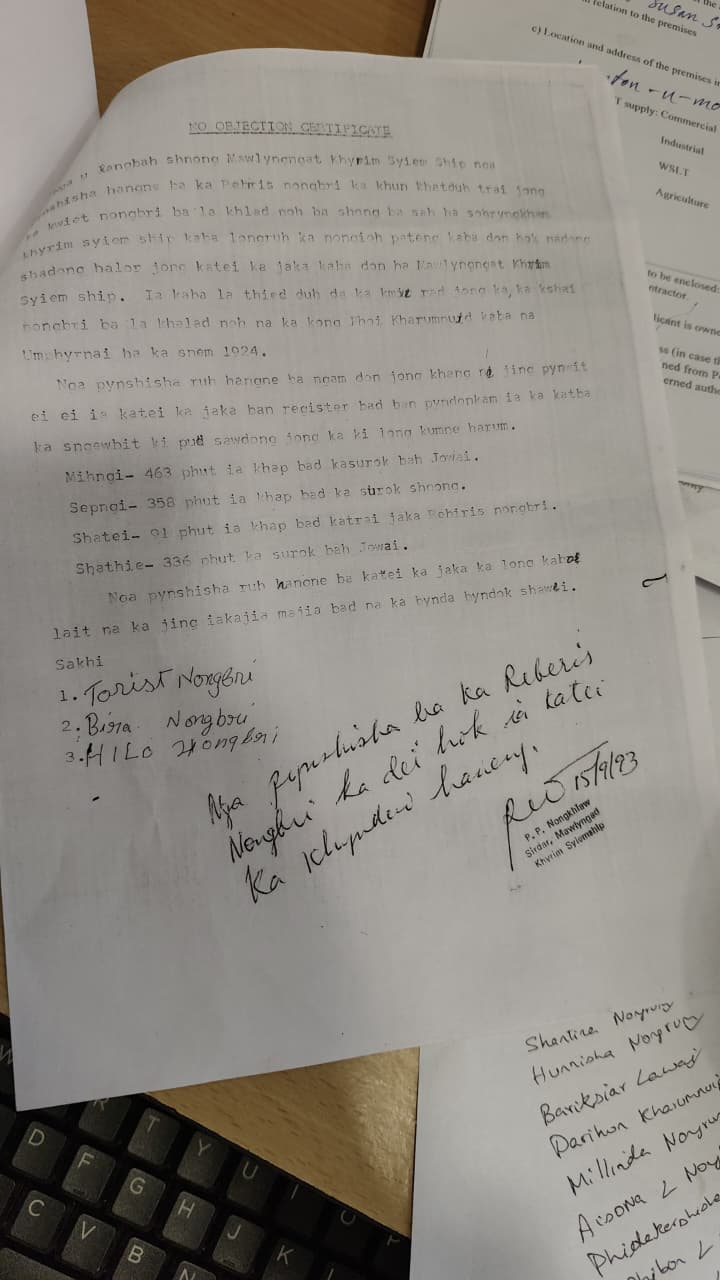 NO OBJECTION CERTIFICATE
Rangbah shnong Mawlyngngat Khyrim Syiem Ship nga
hangne ba ka Rehiris nongbri ka khun khatduh trai jong
kwiet nongbri ba la khlad noh ba shong ba sah ha sohryngkham
khyrim syiem ship kaba longruh ka nongioh pateng kaba don hok nadong
shadong halor jong katei ka jaka kaba don ha Mawlyngngat Khyrim
Syiem ship. Ia kaba la thied duh da ka kmie rad jong ka, ka kshai
nongbri ba la khalad noh na ka kong Phoi Kharumnuid kaba na
Umphyrnai ha ka snem 1924.
Nga pynshisha ruh hangne ba ngam don jong khang ne jing pynwit
ei ei ia katei ka jaka ban register bad ban pyndonkam ia ka katba
ka sngewbit ki pud sawdong jong ka ki long kumne harum.
Mihngi- 463 phut ia khap bad kasurok bah Jowai.
Sepngi- 358 phut ia khap bad ka surok shnong.
Shatei- 91 phut ia khap bad katrai jaka Rehiris nongbri.
Shathie- 336 phut ka surok bah Jowai.
Nga pynshisha ruh hangne ba katei ka jaka ka long kabat
lait na ka jing iakajia majia bad na ka bynda byndok shawei.
Sakhi
1. Torist Nongbri
2. Bira Nongbri
3. HILO Nongbri
Nga pynshisha ba ka Reberis
Nongbri ka dei hok ia katei
Ka Khyndew haneng.
15/9/93
P.P. Nongkhlaw
Sirdar, Mawlyngad
Khyrim Syiemship
relation to the premises
c) Location and address of the premises
T supply: Commercial
Industrial
WSLT
Agriculture
to be enclosed:
ntractor.
licant is owne
ss (in case th
ned from P
erned autho
Shantina Nongrum
Hunnisha Nongrum
Bariksiar Lawai
Darihun Kharumnuid
Millinda Nongrum
D
F
G
H
J
K
C
V
B
N
R
T
Y
U
I
O
P